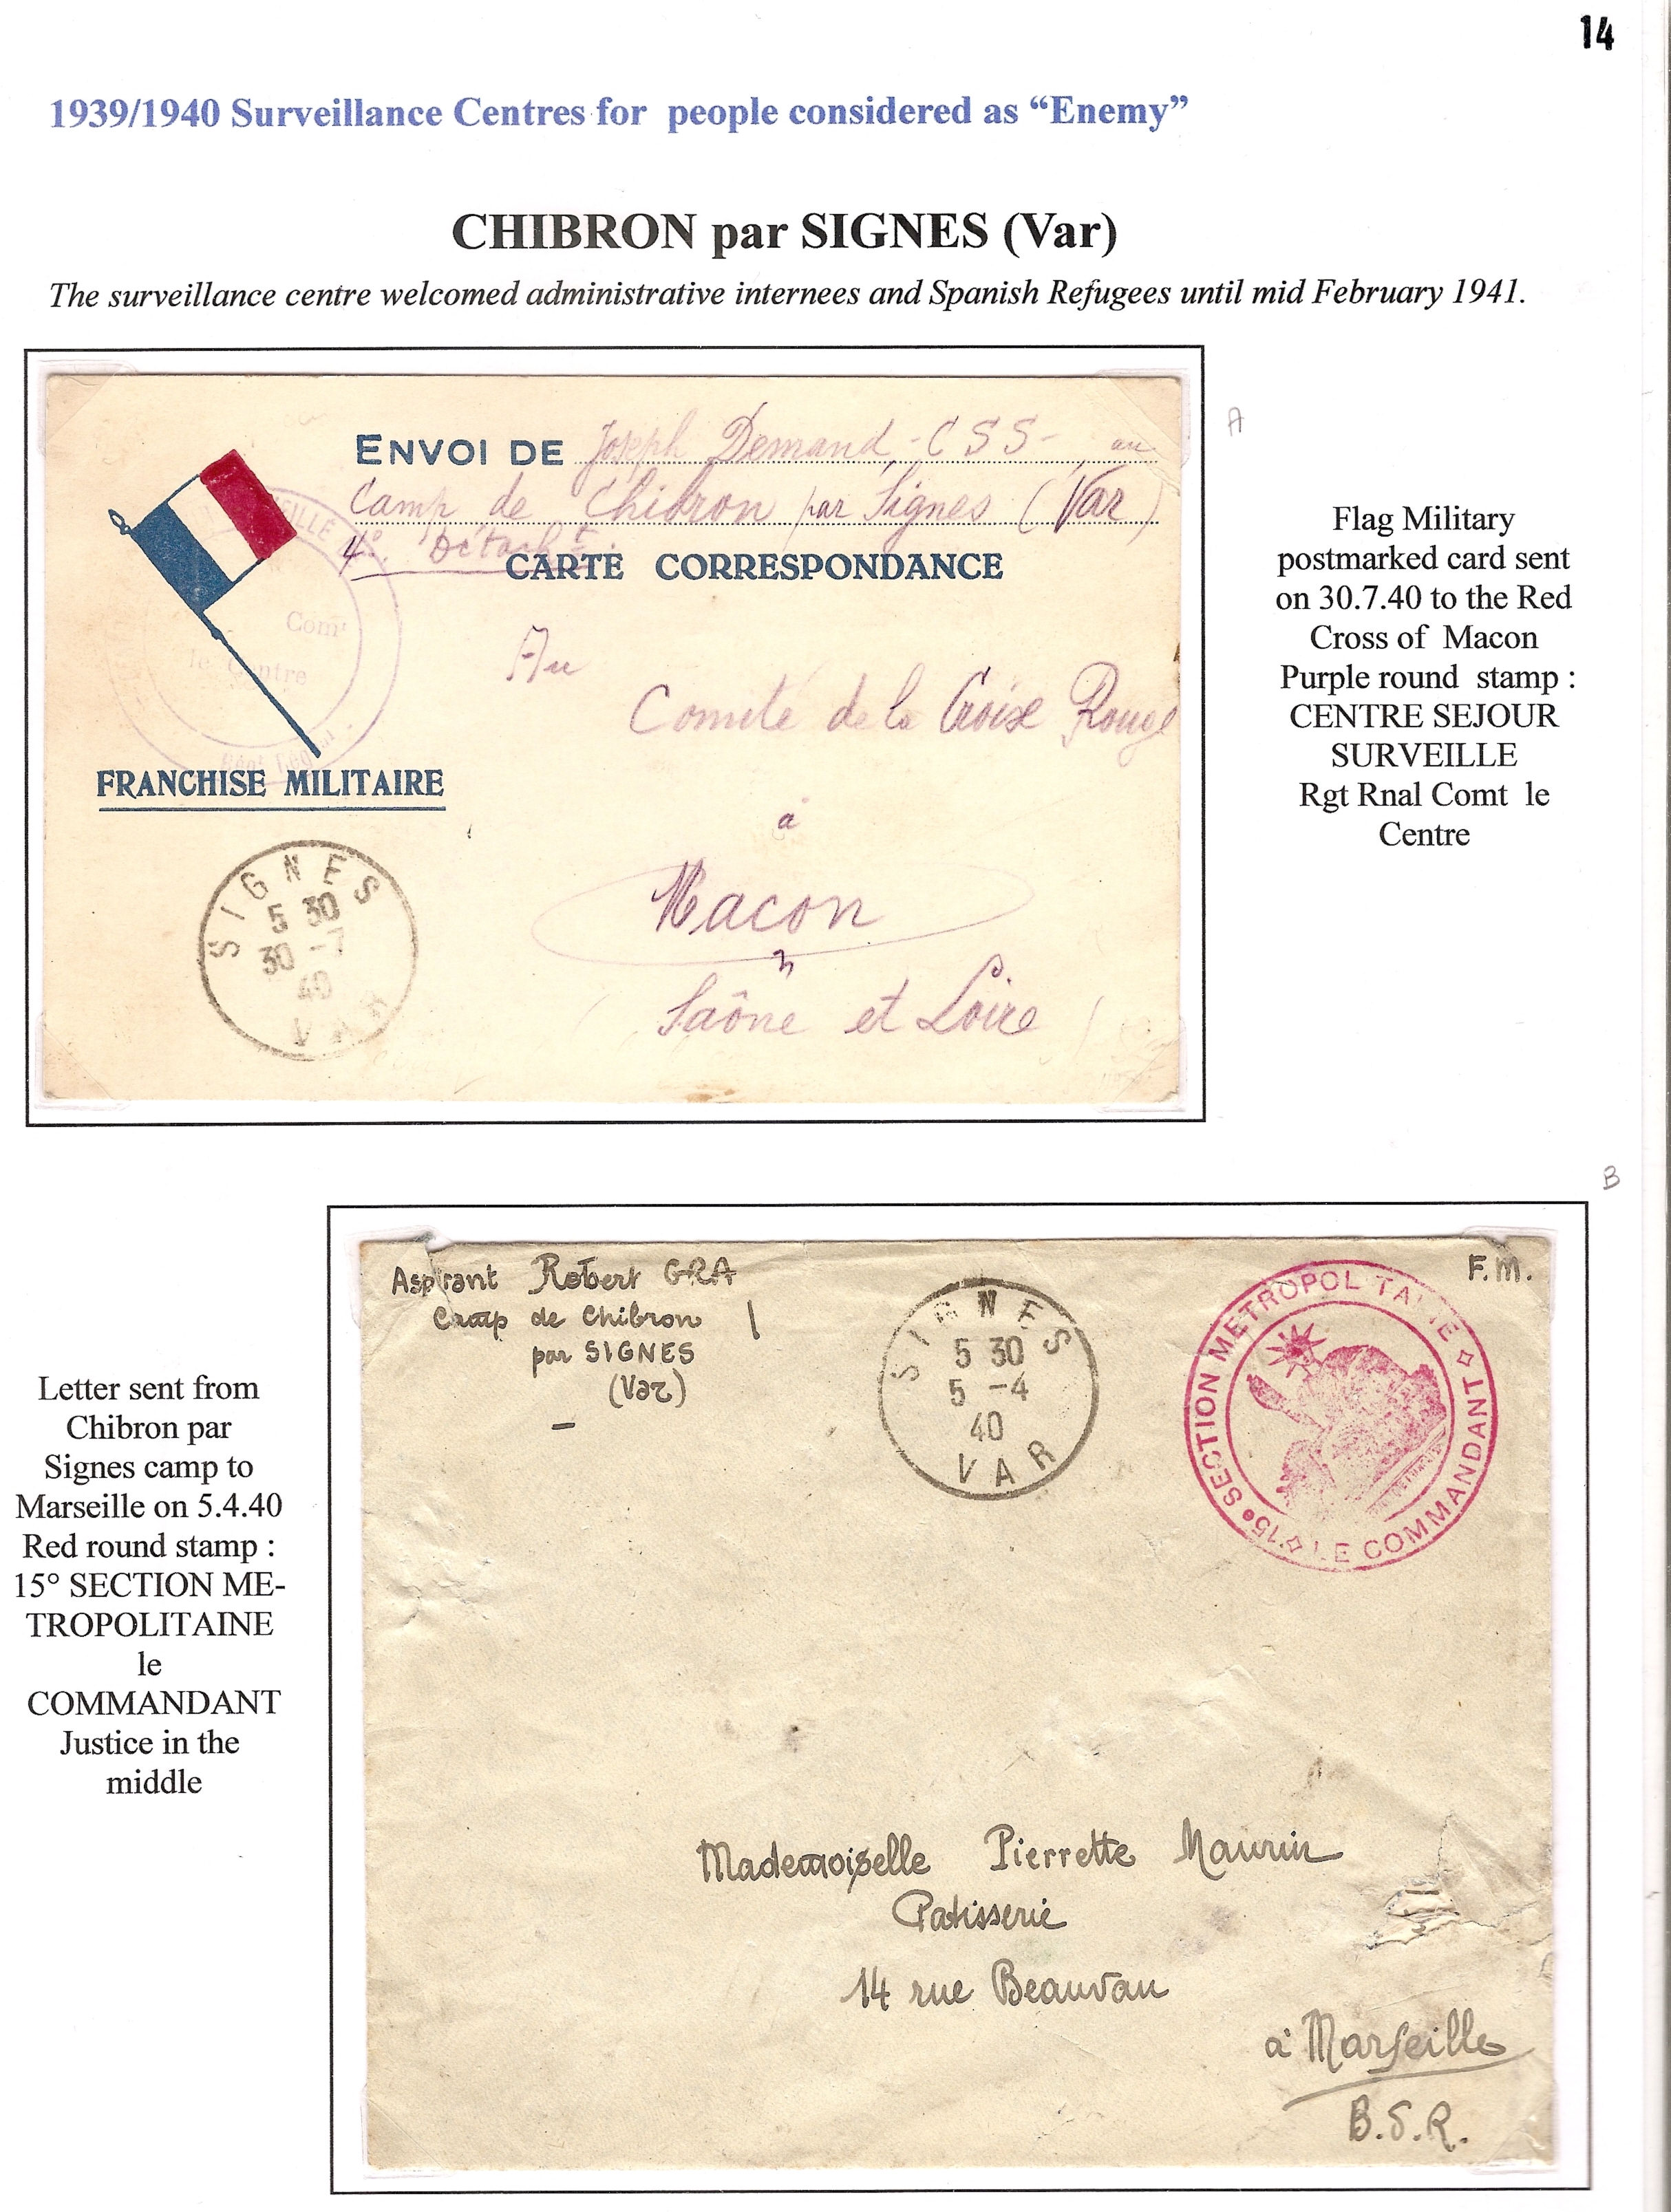 14
1939/1940 Surveillance Centres for people considered as “Enemy”
CHIBRON par SIGNES (Var)
The surveillance centre welcomed administrative internees and Spanish Refugees until mid February 1941.
A
ENVOI DE Joseph Demand - CSS - au
Camp de Chibron par Signes (Var)
4° Détacht.
CARTE CORRESPONDANCE
Comt
le Centre
Au
Comité de la Croix Rouge
FRANCHISE MILITAIRE
à
Macon
Saône et Loire
SIGNES
5 30
30 -7
40
VAR
Flag Military
postmarked card sent
on 30.7.40 to the Red
Cross of Macon
Purple round stamp :
CENTRE SEJOUR
SURVEILLE
Rgt Rnal Comt le
Centre
B
Aspirant Robert GRA
Camp de Chibron
par SIGNES
(Var)
SIGNES
5 30
5 -4
40
VAR
F.M.
15e SECTION METROPOLITAINE
LE COMMANDANT
Letter sent from
Chibron par
Signes camp to
Marseille on 5.4.40
Red round stamp :
15° SECTION ME-
TROPOLITAINE
le
COMMANDANT
Justice in the
middle
Mademoiselle Pierrette Maurin
Patisserie
14 rue Beauvau
à Marseille
B.d.R.